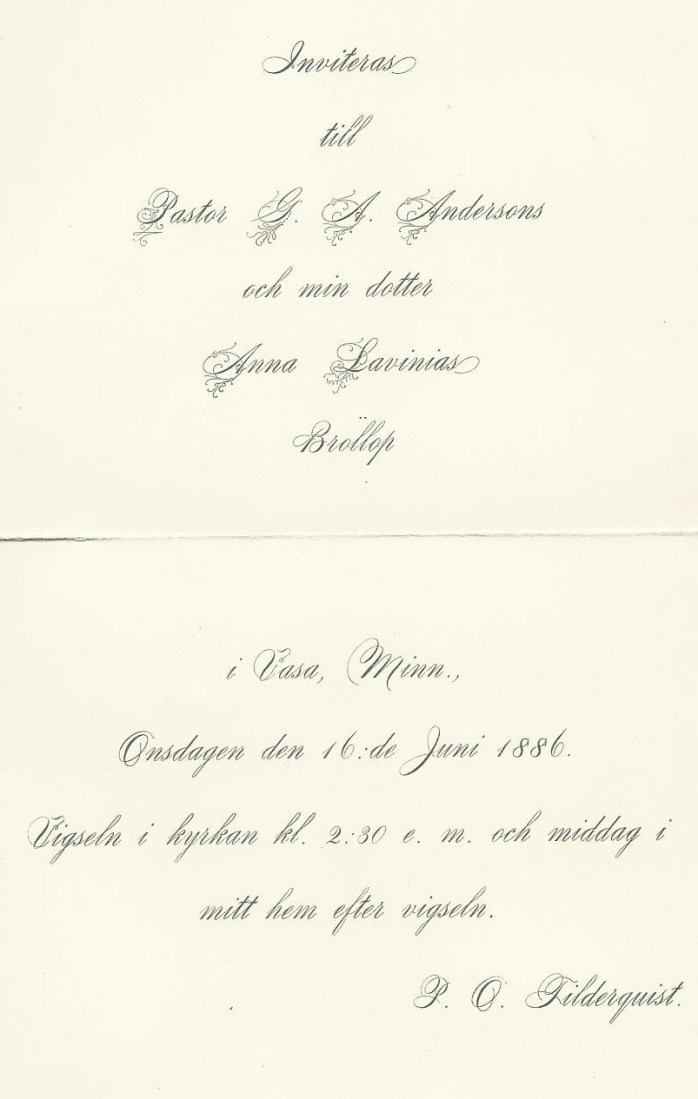 Inviteras
till
Pastor G. A. Andersons
och min dotter
Anna Lavinias
Bröllop
i Vasa, Minn.,
Onsdagen den 16:de Juni 1886.
Vigseln i kyrkan kl. 2:30 e. m. och middag i
mitt hem efter vigseln.
P. O. Tilderquist.